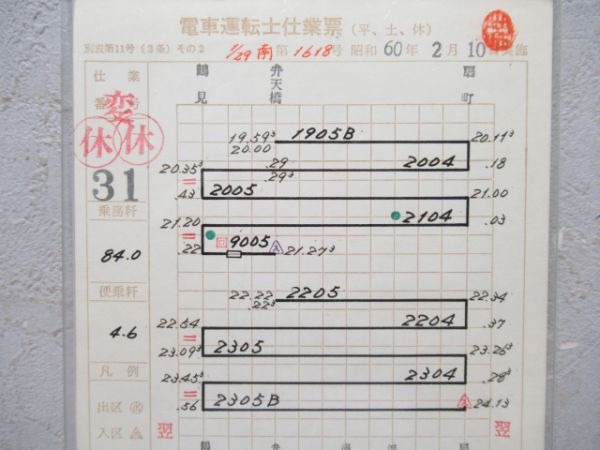 電車運転士仕業票(平、土、休)
別表第11号(3条)その2 1/29南 第1618号 昭和60年2月10日実施
仕業 鶴見 弁天橋 扇町
番号 変
休 休
31
19.59³ 1905B 20.11³
20.00
20.35³ .29 2004 .18
.29³
.43 2005 21.00
乗務粁
21.20 2104 .03
.22 回 9005 入 21.27³
84.0
便乗粁
22.22 2205 22.34
.22³
4.6
22.54 2204 .37
23.09³ 2305 23.26³
凡例
23.45³ 2304 .28³
.56 2305B 24.13
出区
入区 入 翌 翌